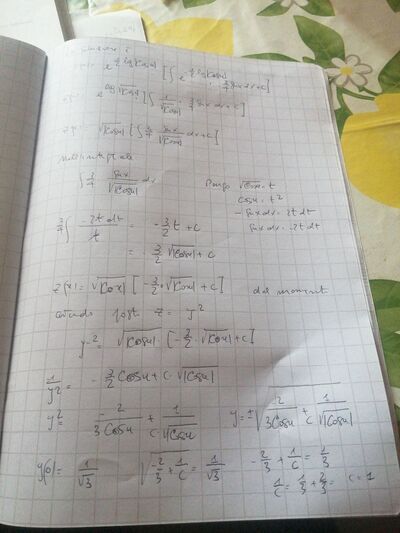 e^{½ log|cosx|} [∫ e^{-½ log|cosx|} · ¾ sinx dx + c]
e^{log √|cosx|} [∫ 1/√|cosx| · ¾ sinx dx + c]
√|cosx| [∫ ¾ sinx/√|cosx| dx + c]
∫ ¾ sinx/√|cosx| dx
Pongo √cosx = t
cosx = t²
-sinx dx = 2t dt
sinx dx = -2t dt
¾ ∫ -2t dt / t = -3/2 t + c
= -3/2 √|cosx| + c
z(x) = √|cosx| [-3/2 · √|cosx| + c] dal momento
z = y^{-2}
y^{-2} = √|cosx| · [-3/2 · √|cosx| + c]
1/y² = -3/2 cosx + c · √|cosx|
y² = -2/3cosx + 1/c·√|cosx|
y = ±√(-2/3cosx + 1/c√|cosx|)
y(0) = 1/√3
√(-2/3 + 1/c) = 1/√3
-2/3 + 1/c = 1/3
1/c = 1/3 + 2/3 = c = 1